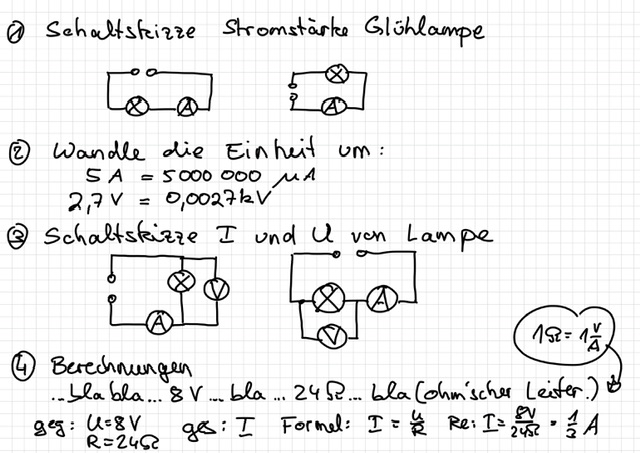 ① Schaltskizze Stromstärke Glühlampe
X A
X
A
② Wandle die Einheit um:
5 A = 5000 000 µA
2,7 V = 0,0027 kV
③ Schaltskizze I und U von Lampe
X V
A
X A
V
1Ω = 1 V/A
④ Berechnungen
...bla bla... 8 V... bla... 24 Ω... bla (ohm'scher Leiter.)
geg: U = 8 V ges: I Formel: I = U/R Re: I = 8V/24Ω = 1/3 A
R = 24 Ω